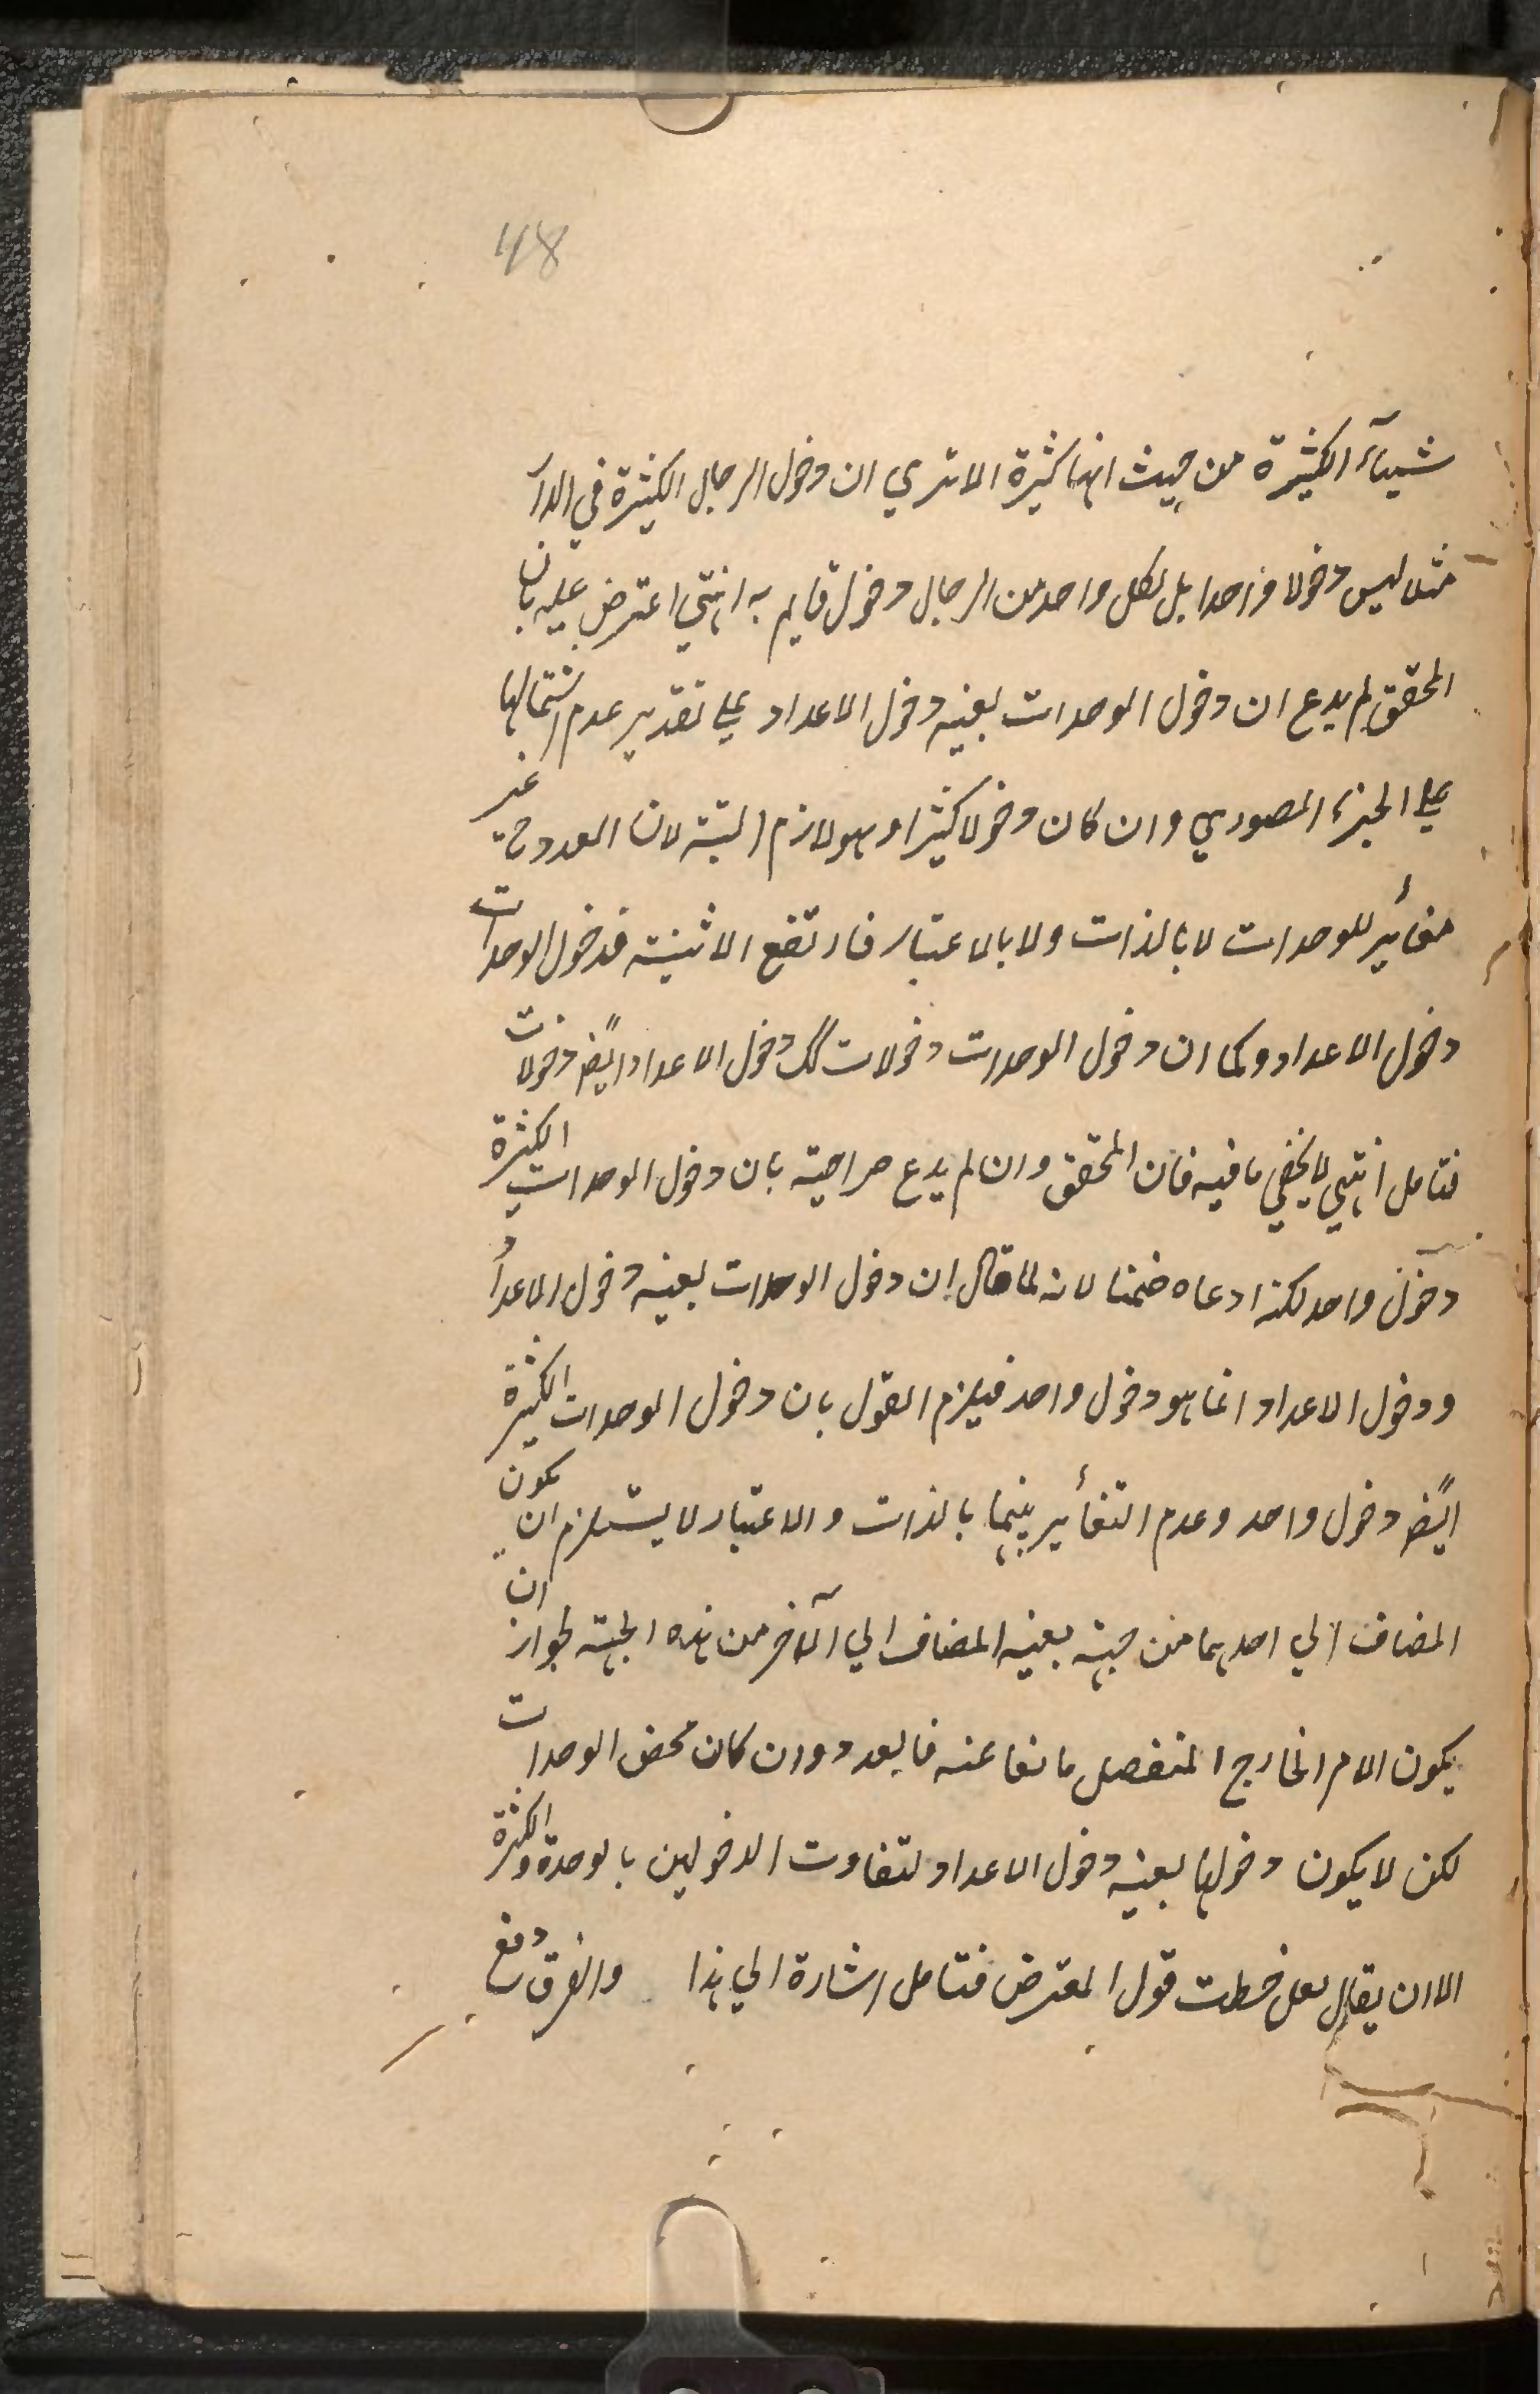 48
شيآء الكثيرة من حيث انها كثيرة الا تري ان دخول الرجال الكثيرة في الدار
مثلا ليس دخولا واحدا بل لكل واحد من الرجال دخول قايم به انتهي اعترض عليه بان
المحقق لم يدع ان دخول الوحدات بعينه دخول الاعداد علي تقدير عدم اشتمالها
علي الجزء الصوري وان كان دخولا كثيرا وهو لازم البتة لان العدد ح غير
مغأير للوحدات لا بالذات ولا بالاعتبار فارتفع الاثنينية فدخول الوحدات
دخول الاعداد وكما ان دخول الوحدات دخولات كك دخول الاعداد ايضً دخولات
فتامل انتهي لا يخفي ما فيه فان المحقق وان لم يدع صراحية بان دخول الوحدات الكثيرة
دخول واحد لكنه ادعاه ضمنا لانه لما قال ان دخول الوحدات بعينه دخول الاعداد
ودخول الاعداد انما هو دخول واحد فيلزم القول بان دخول الوحدات الكثيرة
ايضً دخول واحد وعدم التغأير بينهما بالذات والاعتبار لا يستلزم ان يكون
المضاف الي احدهما من جهة بعينه المضاف الي الآخر من هذه الجهة لجواز ان
يكون الامر الخارج المنفصل مانعا عنه فالعدد وان كان محض الوحدات
لكن لا يكون دخولها بعينه دخول الاعداد لتفاوت الدخولين بالوحدة والكثرة
الا ان يقال لعل قول المعترض فتامل اشارة الي هذا والفرق دفع